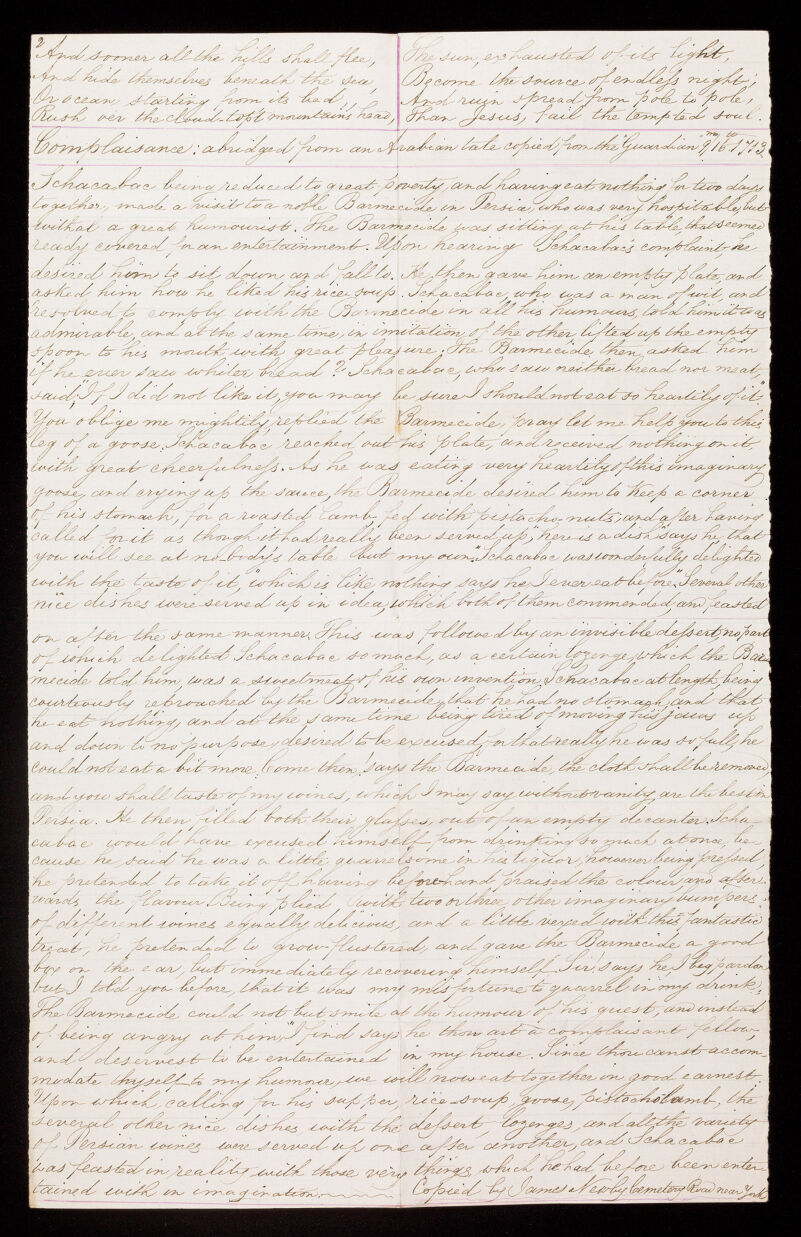 2
And sooner all the hills shall flee,
And hide themselves beneath the sea,
Or ocean starting from its bed,
Rush o'er the cloud-topt mountain's head,
The sun, exhausted of its light,
Become the source of endless night;
And ruin spread from pole to pole,
Than Jesus, fail the tempted soul.
Complaisance: abridged from an Arabian tale copied from the Guardian No 161713
Schacabac being reduced to great poverty, and having eat nothing for two days
together, made a visit to a noble Barmecide in Persia, who was very hospitable, but
withal a great humourist. The Barmecide was sitting at his table, that seemed
ready covered for an entertainment. Upon hearing Schacabac's complaint, he
desired him to sit down and fall to. He then gave him an empty plate, and
asked him how he liked his rice soup. Schacabac, who was a man of wit, and
resolved to comply with the Barmecide in all his humours, told him it was
admirable, and at the same time, in imitation of the other lifted up the empty
spoon to his mouth with great pleasure. The Barmecide, then asked him
if he ever saw whiter bread? Schacabac, who saw neither bread nor meat,
said, "If I did not like it, you may be sure I should not eat so heartily of it."
You oblige me mightily, replied the Barmecide, pray let me help you to this
leg of a goose. Schacabac reached out his plate, and received nothing on it,
with great cheerfulness. As he was eating very heartily of this imaginary
goose, and crying up the sauce, the Barmecide desired him to keep a corner
of his stomach, for a roasted lamb fed with pistacho nuts; and after having
called for it as though it had really been served up, "here is a dish says he that
you will see at no-body's table but my own." Schacabac was wonderfully delighted
with the taste of it, "which is like nothing says he, I ever eat before." Several other
nice dishes were served up in idea, which both of them commended, and feasted
on after the same manner. This was followed by an invisible dessert, no part
of which delighted Schacabac so much, as a certain lozenge, which the Bar-
mecide told him was a sweetmeat of his own invention. Schacabac at length, being
courteously reproached by the Barmecide, that he had no stomach, and that
he eat nothing, and at the same time being tired of moving his jaws up
and down to no purpose, desired to be excused, for that really he was so full, he
could not eat a bit more. Come then, says the Barmecide, the cloth shall be removed,
and you shall taste of my wines, which I may say without vanity, are the best in
Persia. He then filled both their glasses, out of an empty decanter. Scha-
cabac would have excused himself from drinking so much at once, be-
cause he said he was a little quarrelsome in his liquor, however being pressed
he pretended to take it off having beforehand praised the colour, and after-
wards the flavour. Being plied with two or three other imaginary bumpers
of different wines equally delicious, and a little vexed with this fantastic
treat, he pretended to grow flustered, and gave the Barmecide a good
box on the ear, but immediately recovering himself Sir, says he, I beg pardon
but I told you before, that it was my misfortune to quarrel in my drink.
The Barmecide could not but smile at the humour of his guest, and instead
of being angry at him, "I find says he thou art a complaisant fellow,
and deservest to be entertained in my house. Since thou canst accom-
modate thyself to my humour, we will now eat together in good earnest
Upon which calling for his supper rice-soup, goose, pistacho lamb, the
several other nice dishes with the dessert, lozenges, and all the variety
of Persian wines were served up one after another, and Schacabac
was feasted in reality with those very things which he had before been enter-
tained with in imagination. Copied by James Newby Cemetery Road near York